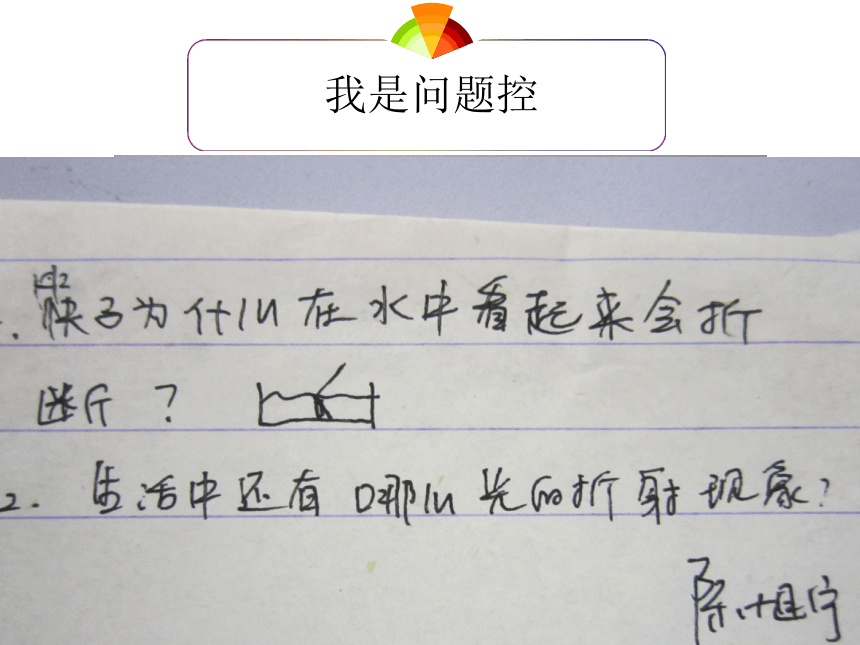 我是问题控
筷子为什么在水中看起来会折
断？
2. 生活中还有哪么光的折射现象？